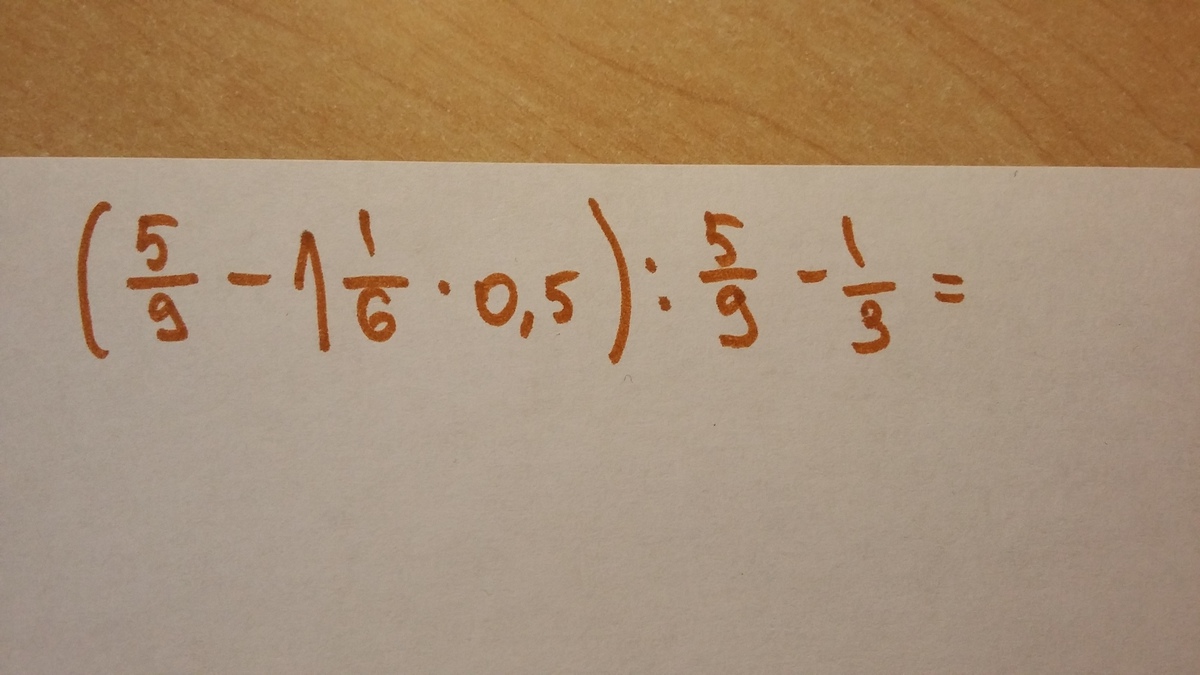 (5/9 - 1 1/6 · 0,5) : 5/9 - 1/3 =